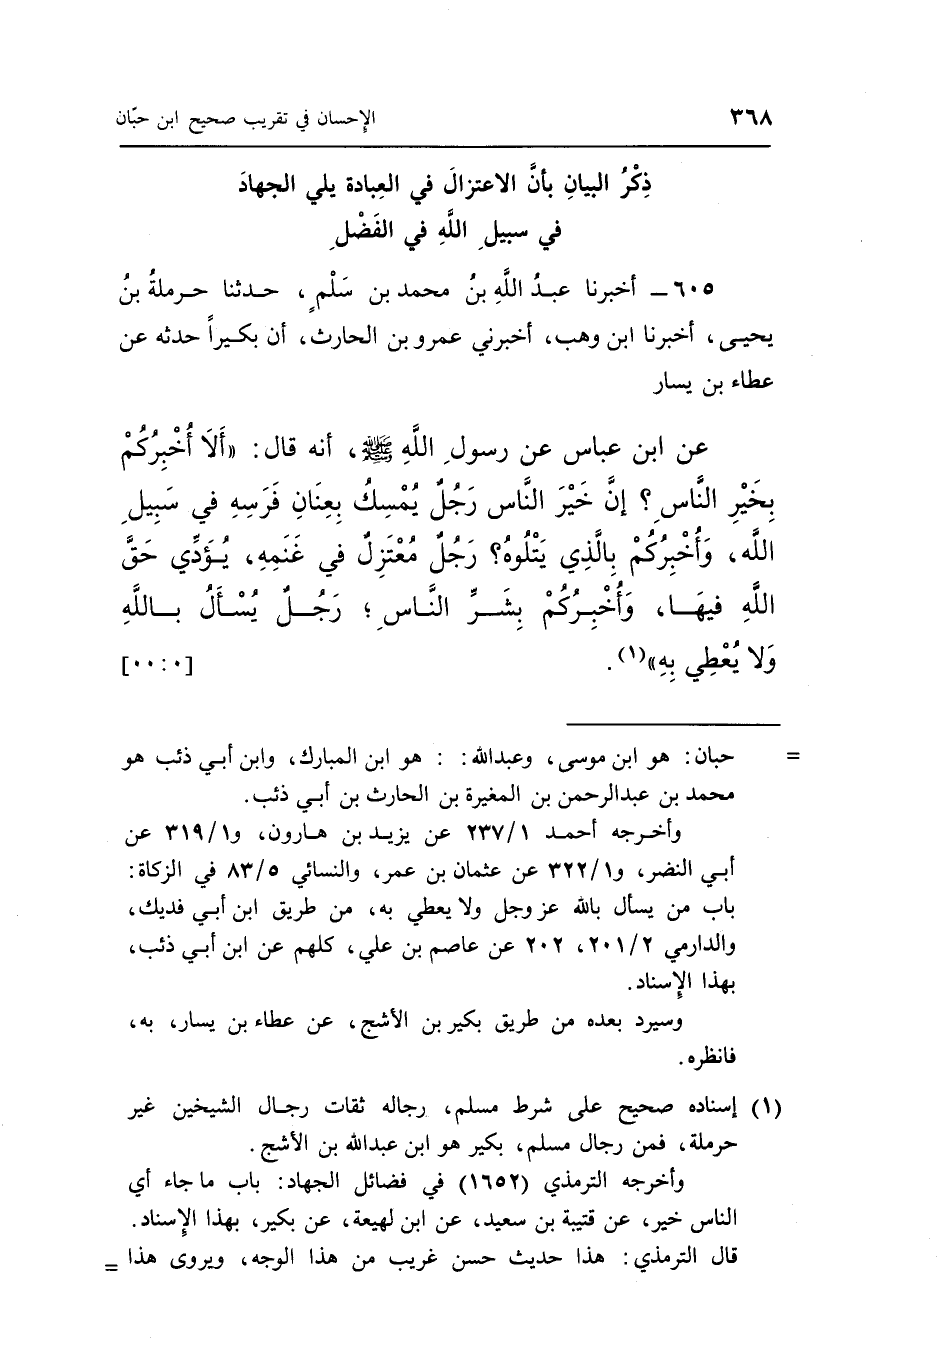 ٣٦٨
الإحسان في تقريب صحيح ابن حبّان
ذِكْرُ البيانِ بأنَّ الاعتزالَ في العِبادة يلي الجهادَ
في سبيلِ اللَّهِ في الفَضْلِ
٦٠٥ ـ أخبرنا عبدُ اللَّهِ بنُ محمد بن سَلْمٍ، حدثنا حرملةُ بنُ
يحيى، أخبرنا ابن وهب، أخبرني عمرو بن الحارث، أن بكيراً حدثه عن
عطاء بن يسار
عن ابن عباس عن رسولِ اللَّهِ ﷺ، أنه قال: «أَلَا أُخْبِرُكُمْ
بِخَيْرِ النَّاسِ؟ إنَّ خَيْرَ النَّاس رَجُلٌ يُمْسِكُ بِعِنَانِ فَرَسِهِ في سَبِيلِ
اللَّه، وَأُخْبِرُكُمْ بِالَّذِي يَتْلُوهُ؟ رَجُلٌ مُعْتَزِلٌ في غَنَمِهِ، يُؤَدِّي حَقَّ
اللَّهِ فيهَا، وَأُخْبِرُكُمْ بِشَرِّ النَّاسِ؛ رَجُلٌ يُسْأَلُ بِاللَّهِ
وَلا يُعْطِي بِهِ»(١). [٠:٠٠]
= حبان: هو ابن موسى، وعبدالله: : هو ابن المبارك، وابن أبي ذئب هو
محمد بن عبدالرحمن بن المغيرة بن الحارث بن أبي ذئب.
وأخرجه أحمد ٢٣٧/١ عن يزيد بن هارون، و٣١٩/١ عن
أبي النضر، و٣٢٢/١ عن عثمان بن عمر، والنسائي ٨٣/٥ في الزكاة:
باب من يسأل بالله عز وجل ولا يعطي به، من طريق ابن أبي فديك،
والدارمي ٢٠١/٢، ٢٠٢ عن عاصم بن علي، كلهم عن ابن أبي ذئب،
بهذا الإسناد.
وسيرد بعده من طريق بكير بن الأشج، عن عطاء بن يسار، به،
فانظره.
(١) إسناده صحيح على شرط مسلم، رجاله ثقات رجال الشيخين غير
حرملة، فمن رجال مسلم، بكير هو ابن عبدالله بن الأشج.
وأخرجه الترمذي (١٦٥٢) في فضائل الجهاد: باب ما جاء أي
الناس خير، عن قتيبة بن سعيد، عن ابن لهيعة، عن بكير، بهذا الإسناد.
قال الترمذي: هذا حديث حسن غريب من هذا الوجه، ويروى هذا =